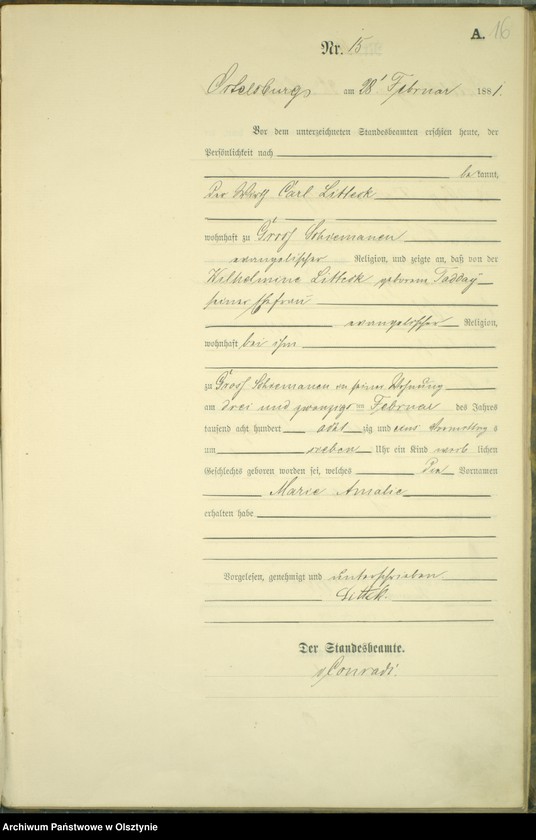 A. 16
Nr. 15
Ortelsburg am 28t Februar 1881.
Vor dem unterzeichneten Standesbeamten erschien heute, der
Persönlichkeit nach
be kannt,
Der Carl Litteck
wohnhaft zu Groß Schiemanen
evangelischer Religion, und zeigte an, daß von der
Wilhelmine Litteck geborene Tadday
seiner Ehefrau
evangelischer Religion,
wohnhaft bei ihm
zu Groß Schiemanen in seiner Wohnung
am drei und zwanzigs ten Februar des Jahres
tausend acht hundert acht zig und eins Vormittag s
um sieben Uhr ein Kind weib lichen
Geschlechts geboren worden sei, welches die Vornamen
Marie Amalie
erhalten habe
Vorgelesen, genehmigt und unterschrieben
Littek.
Der Standesbeamte.
Conradi.
Archiwum Państwowe w Olsztynie